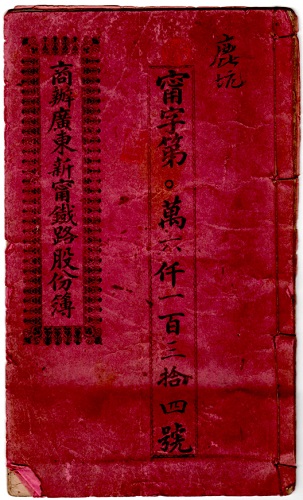 鹿坑
甯字第〇萬六仟一百三拾四號
商辦廣東新甯鐵路股份簿